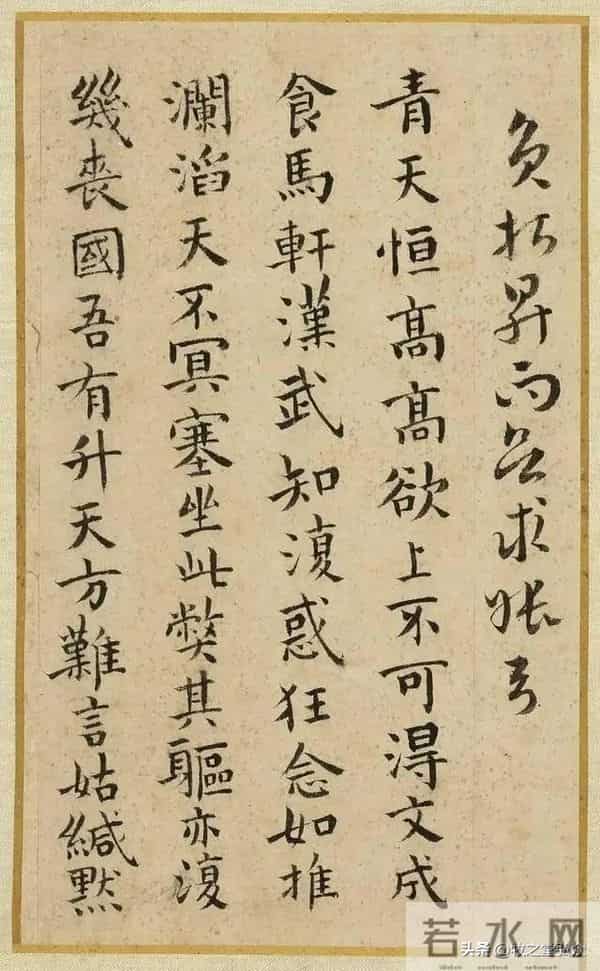 負昇而求
青天恒髙髙欲上不可得文成
食馬軒漢武知復惑狂念如推
瀾滔天不冥塞坐此弊其軀亦復
幾喪國吾有升天方難言姑緘默
若水网
头条